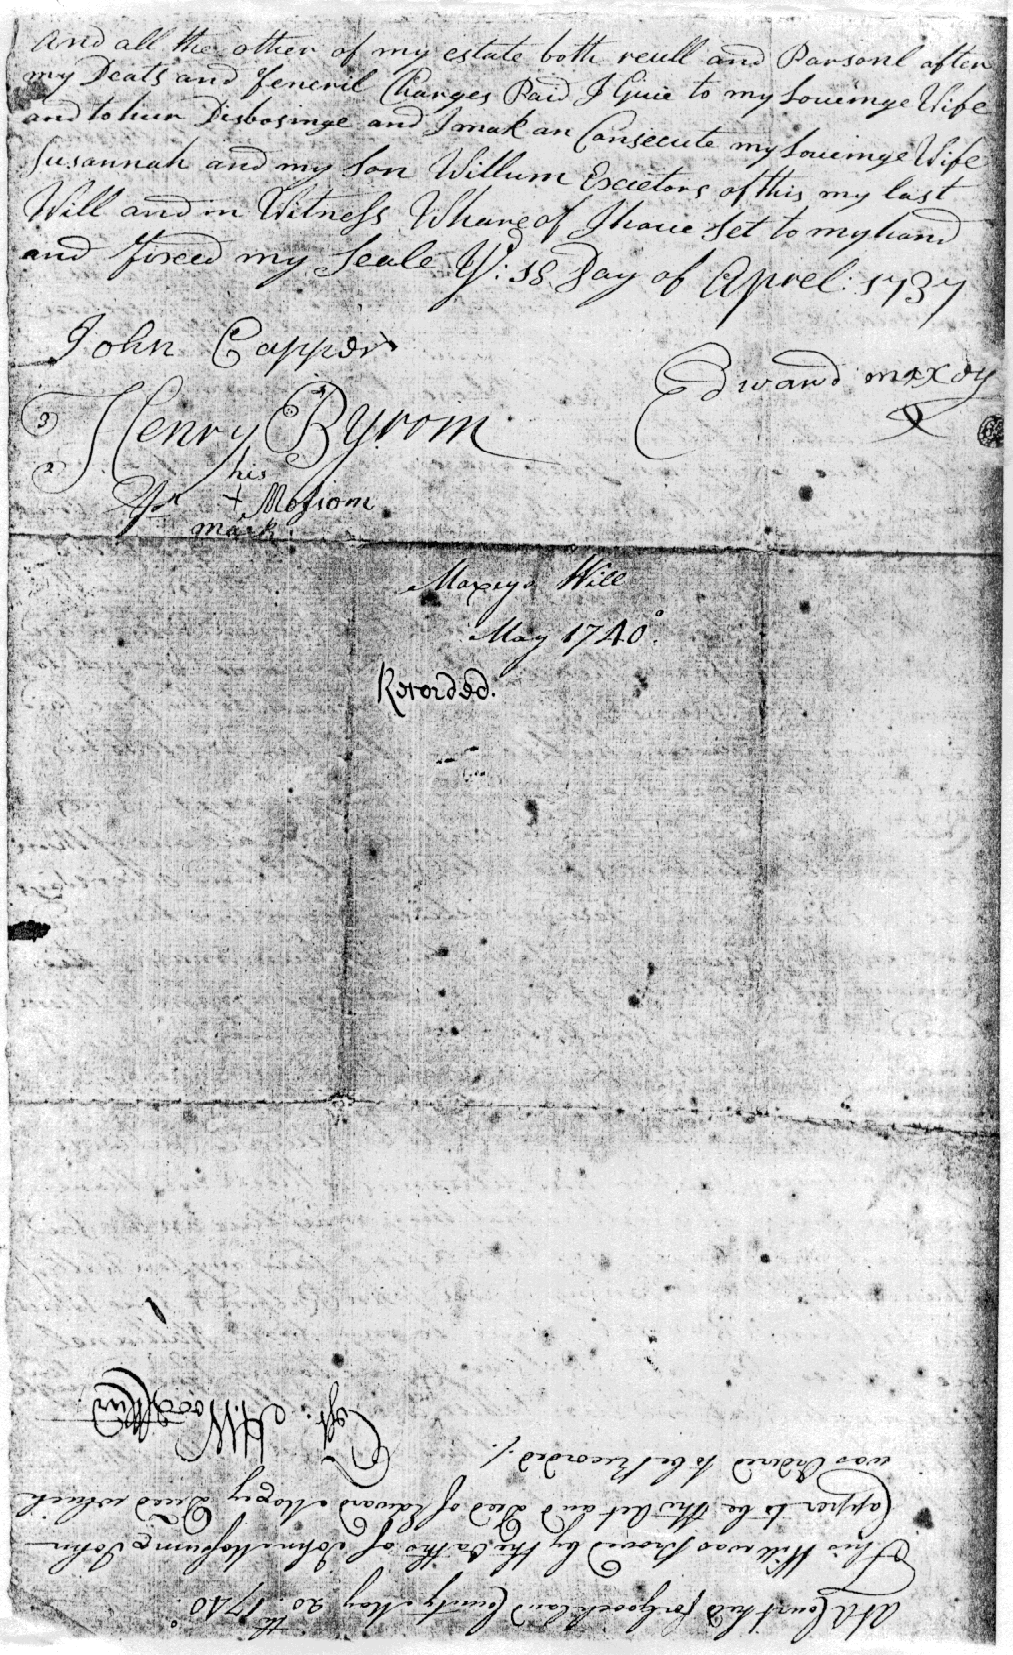 and all the other of my estate both reull and Parsonl after
my Deats and feneril Charges Paid I Giue to my Loueinge Wife
and to hur Disbosinge and I mak an Consecute my Loueinge Wife
Susannah and my Son Willum Excetors of this my last
Will and in Witness Whareof I haue set to my hand
and fixed my Seale Ye: 18 Day of Aprel: 1737
John Capper
Edward maxey
3 Henry Byrom
2 his
Jn + Mosiom
mark
Maxeys Will
May 1740.
Recorded.
At a Court held for Goochland County May 20th: 1740.
This Will was Proved by the Oaths of John Mosum & John
Capper to be the Act and Deed of Edward Maxey Deced which
was Ordered to be Recorded./.
Test. H. Wood Cl Cur